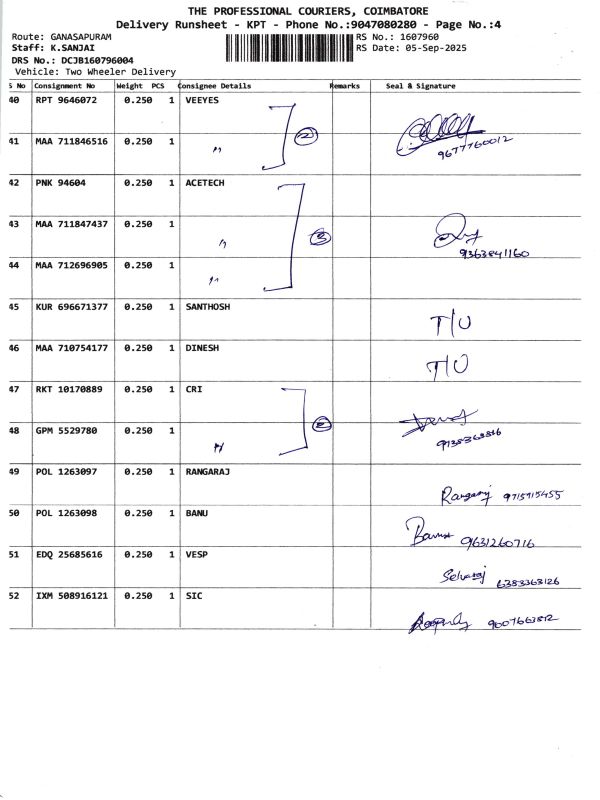 THE PROFESSIONAL COURIERS, COIMBATORE
Delivery Runsheet - KPT - Phone No.:9047080280 - Page No.:4
Route: GANASAPURAM RS No.: 1607960
Staff: K.SANJAI RS Date: 05-Sep-2025
DRS No.: DCJB160796004
Vehicle: Two Wheeler Delivery
S No Consignment No Weight PCS Consignee Details Remarks Seal & Signature
40 RPT 9646072 0.250 1 VEEYES
41 MAA 711846516 0.250 1 〃 2 9677760012
42 PNK 94604 0.250 1 ACETECH
43 MAA 711847437 0.250 1 〃 3 9363841160
44 MAA 712696905 0.250 1 〃
45 KUR 696671377 0.250 1 SANTHOSH T/U
46 MAA 710754177 0.250 1 DINESH T/U
47 RKT 10170889 0.250 1 CRI 2
48 GPM 5529780 0.250 1 〃
49 POL 1263097 0.250 1 RANGARAJ Rangaraj 9715915455
50 POL 1263098 0.250 1 BANU Banu 9631260716
51 EDQ 25685616 0.250 1 VESP Selvaraj 6383363126
52 IXM 508916121 0.250 1 SIC